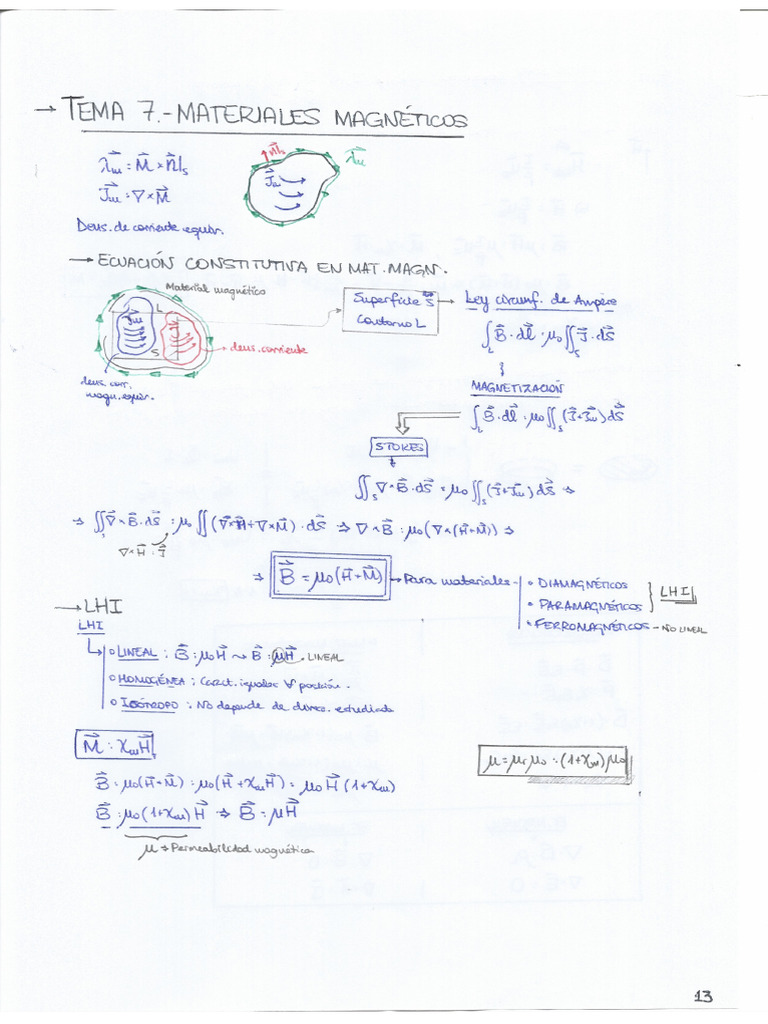 → TEMA 7.- MATERIALES MAGNÉTICOS
λ⃗m = M⃗ × n⃗|s
J⃗m = ∇ × M⃗
n⃗|s
λ⃗m
J⃗m
Dens. de corriente equiv.
→ ECUACIÓN CONSTITUTIVA EN MAT. MAGN.
Material magnético
Superficie S⃗
Contorno L
→ Ley circunf. de Ampère
J⃗m
L
J⃗
S
dens. corriente
dens. corr.
magn. equiv.
∫L B⃗ · dl⃗ = μ0 ∬S J⃗ · dS⃗
MAGNETIZACIÓN
∫L B⃗ · dl⃗ = μ0 ∬S (J⃗ + J⃗m) dS⃗
STOKES
∬S ∇ × B⃗ · dS⃗ = μ0 ∬S (J⃗ + J⃗m) dS⃗ ⇒
⇒ ∬S ∇ × B⃗ · dS⃗ = μ0 ∬ (∇ × H⃗ + ∇ × M⃗) · dS⃗ ⇒ ∇ × B⃗ = μ0 (∇ × (H⃗ + M⃗)) ⇒
∇ × H⃗ = J⃗
⇒ B⃗ = μ0 (H⃗ + M⃗) → Para materiales
• DIAMAGNÉTICOS
• PARAMAGNÉTICOS
LHI
• FERROMAGNÉTICOS – NO LINEAL
→ LHI
LHI
• LINEAL : B⃗ = μ0 H⃗ ~> B⃗ = μH⃗. LINEAL
• HOMOGÉNEA : Caract. iguales ∀ posición.
• ISÓTROPO : No depende de direcc. estudiada
M⃗ = χm H⃗
μ = μr μ0 = (1+χm) μ0
B⃗ = μ0 (H⃗ + M⃗) = μ0 (H⃗ + χm H⃗) = μ0 H⃗ (1+χm)
B⃗ = μ0 (1+χm) H⃗ ⇒ B⃗ = μH⃗
μ → Permeabilidad magnética
13